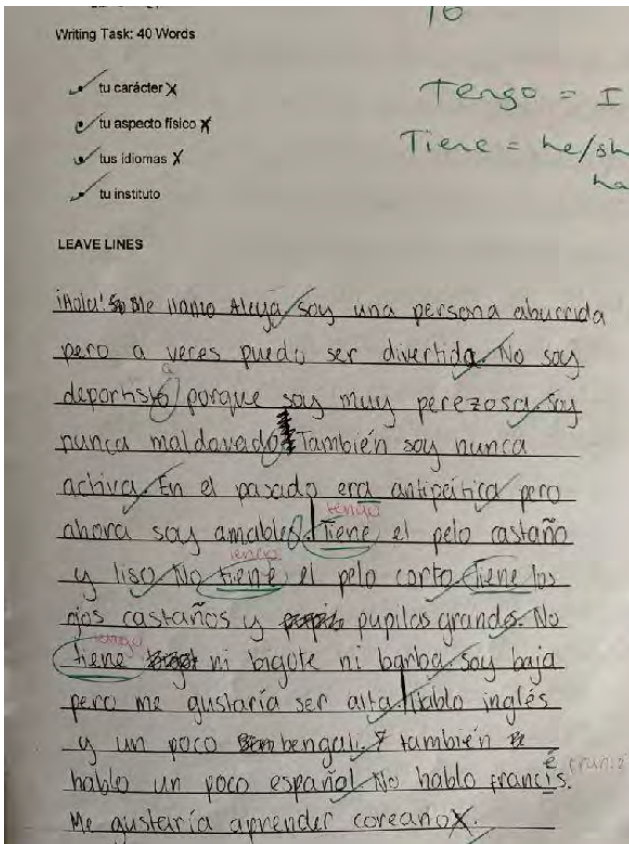 16
Writing Task: 40 Words
tu carácter X
Tengo = I
tu aspecto físico X
Tiene = he/sh
ha
tus idiomas X
tu instituto
LEAVE LINES
¡Hola! Me llamo Aleya soy una persona aburrida
pero a veces puedo ser divertida. No soy
a
deportisto porque soy muy perezosa. Soy
nunca maldavado También soy nunca
activa. En el pasado era pero
tengo
ahora soy amables. Tiene el pelo castaño
tengo
y liso. No tiene el pelo corto. Tiene los
ojos castaños y pupilas grandes. No
tengo
tiene ni bigote ni barba. Soy baja
pero me gustaría ser alta. Hablo inglés
y un poco bengali. también
é
hablo un poco español. No hablo francis.
Me gustaría aprender coreano X.